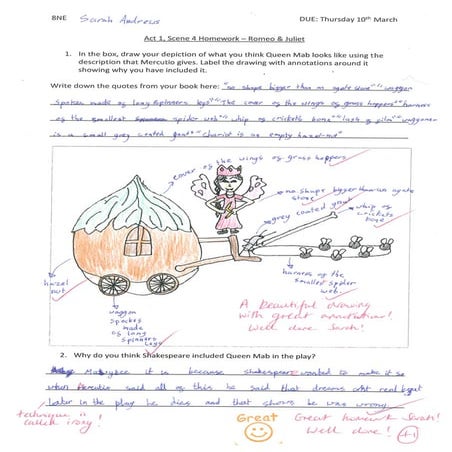 8NE Sarah Andrews DUE: Thursday 10th March
Act 1, Scene 4 Homework – Romeo & Juliet
1. In the box, draw your depiction of what you think Queen Mab looks like using the
description that Mercutio gives. Label the drawing with annotations around it
showing why you have included it.
Write down the quotes from your book here: "no shape bigger than an agate stone" "waggon
spokes made of long spinners legs" "The cover of the wings of grass hoppers" "harness
of the smallest spider web" "whip of crickets bone" "lash of film" "waggoner
is a small grey coated gnat" "chariot is an empty hazel-nut"
cover of the wings of grass hoppers
no shape bigger than an agate
stone
grey coated gnat
whip of
crickets
bone
hazel
nut
waggon
spokes
made
of long
spinners
legs
harness of the
smallest spider
web
A beautiful drawing
with great annotations!
Well done Sarah!
2. Why do you think Shakespeare included Queen Mab in the play?
Maybe it is because shakespeare wanted to make it so
when Mercutio said all of this he said that dreams are not real but
later in the play he dies and that shows he was wrong
technique is
called irony!
Great
Great homework Sarah!
Well done!
+1